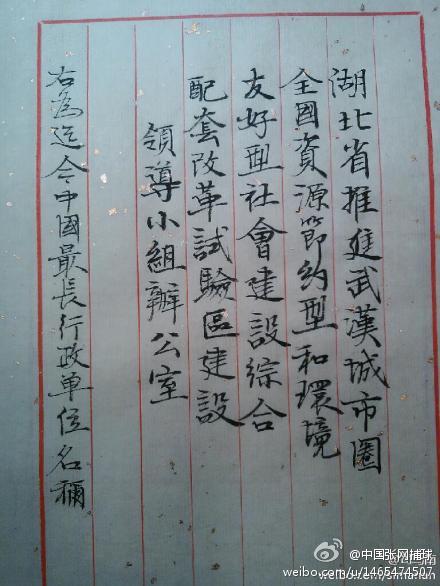 湖北省推進武漢城市圈
全國資源節約型和環境
友好型社會建設綜合
配套改革試驗區建設
領導小組辦公室
右為迄今中國最長行政單位名稱
@中国张网捕球
weibo.com/u/1465474507